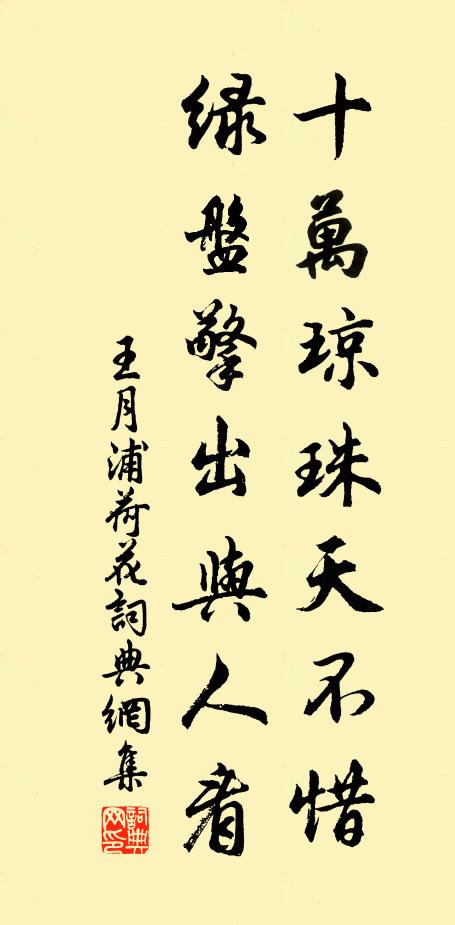 十萬琼珠天不惜
緑盤擎出與人看
王月浦荷花詞典網集
詞典網印